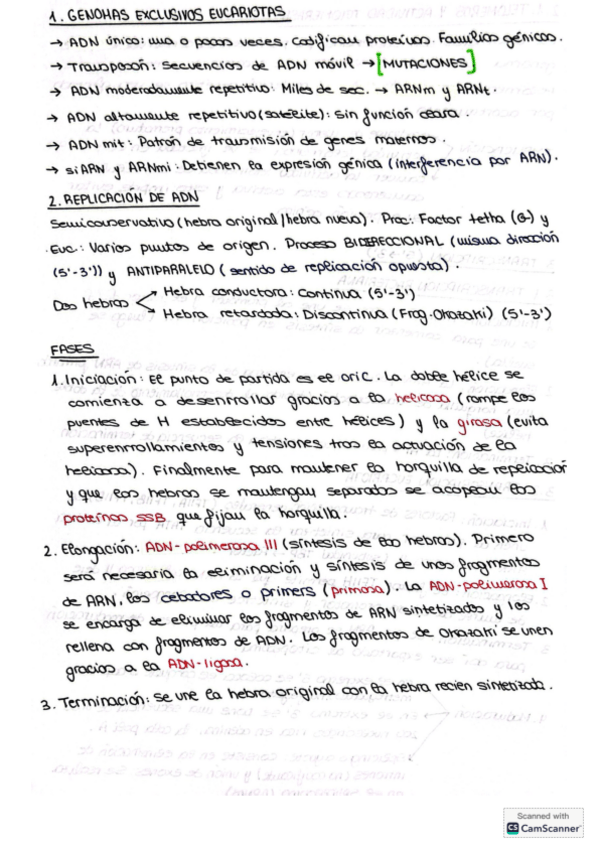 1. GENOMAS EXCLUSIVOS EUCARIOTAS
→ ADN único: una o pocas veces. Codifican proteínas. Familias génicas.
→ Transposón: Secuencias de ADN móvil → [MUTACIONES]
→ ADN moderadamente repetitivo: Miles de sec. → ARNm y ARNt.
→ ADN altamente repetitivo (satélite): Sin función clara.
→ ADN mit: Patrón de transmisión de genes maternos.
→ siARN y ARNmi: Detienen la expresión génica (interferencia por ARN).
2. REPLICACIÓN DE ADN
Semiconservativo (hebra original/hebra nueva). Proc: Factor tetha (θ) y
Euc: Varios puntos de origen. Proceso BIDERECCIONAL (misma dirección
(5'-3')) y ANTIPARALELO (sentido de replicación opuesta).
Dos hebras
Hebra conductora: Continua (5'-3')
Hebra retardada: Discontinua (Frag. Okazaki) (5'-3')
FASES
1. Iniciación: El punto de partida es el oric. La doble hélice se
comienza a desenrrollar gracias a la helicasa (rompe los
puentes de H establecidos entre hélices) y la girasa (evita
superenrrollamientos y tensiones tras la actuación de la
helicasa). Finalmente para mantener la horquilla de repliación
y que las hebras se mantengan separadas se acoplan las
proteínas SSB que fijan la horquilla.
2. Elongación: ADN-polimerasa III (síntesis de las hebras). Primero
será necesaria la eliminación y síntesis de unos fragmentos
de ARN, los cebadores o primers (primasa). La ADN-polimarasa I
se encarga de eliminar los fragmentos de ARN sintetizados y los
rellena con fragmentos de ADN. Los fragmentos de Okazaki se unen
gracias a la ADN-ligasa.
3. Terminación: Se une la hebra original con la hebra recien sintetizada.
Scanned with
CS CamScanner